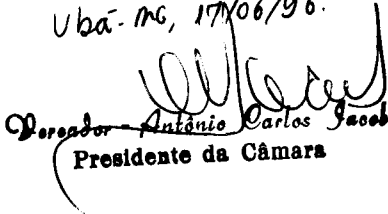 Ubá-MG, 17/06/96.
Vereador - Antônio Carlos Jacob
Presidente da Câmara